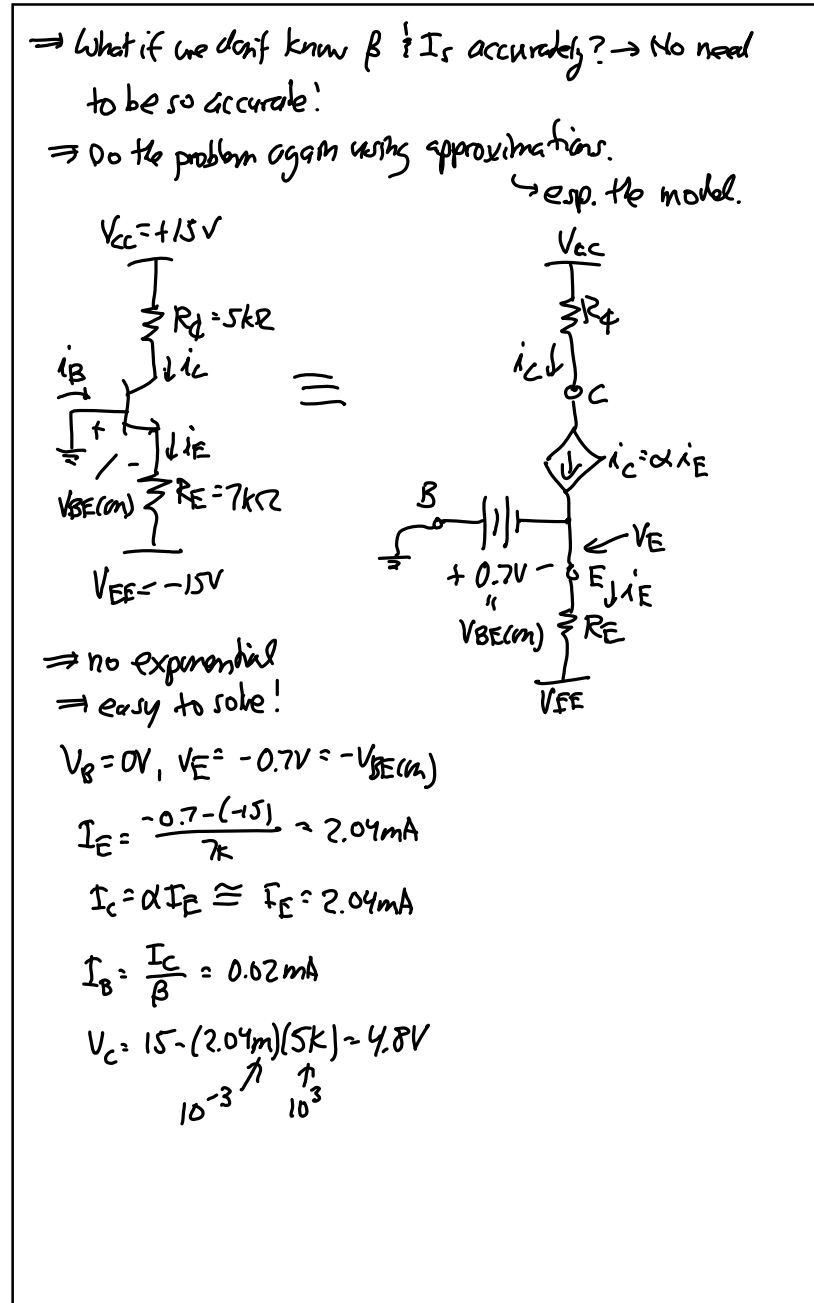 ⇒ What if we don't know β & Is accurately? → No need
to be so accurate!
⇒ Do the problem again using approximations.
↳ esp. the model.
VCC = +15V
RC = 5kΩ
iC
iB
+
-
VBE(on)
iE
RE = 7kΩ
VEE = -15V
≡
VCC
RC
iC
C
iC = αiE
B
+ 0.7V -
"
VBE(on)
VE
E
iE
RE
VEE
⇒ no exponential
⇒ easy to solve!
VB = 0V, VE = -0.7V = -VBE(on)
IE = (-0.7-(-15))/7k = 2.04mA
IC = αIE ≅ IE = 2.04mA
IB = IC/β = 0.02mA
VC = 15-(2.04m)(5k) = 4.8V
10^-3 10^3